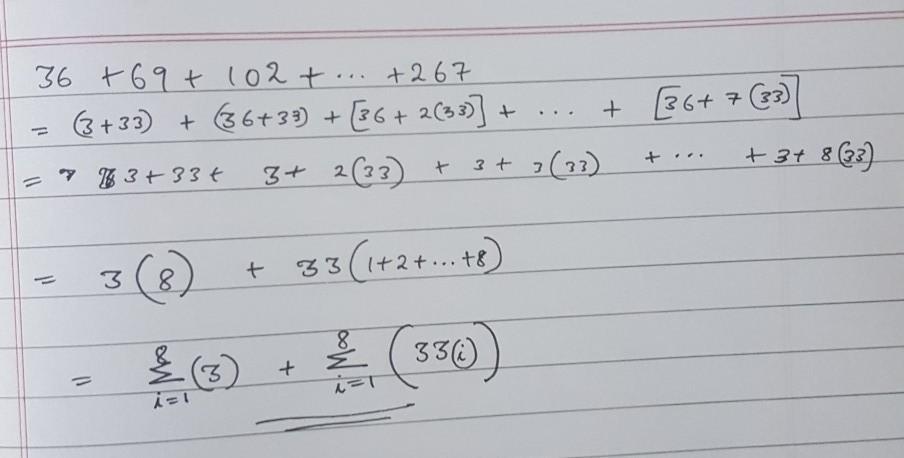 36 + 69 + 102 + ... + 267
= (3+33) + (36+33) + [36 + 2(33)] + ... + [36+ 7(33)]
= 3+33+ 3+ 2(33) + 3+ 3(33) + ... + 3+ 8(33)
= 3(8) + 33(1+2+...+8)
= 8 Σ i=1 (3) + 8 Σ i=1 (33(i))